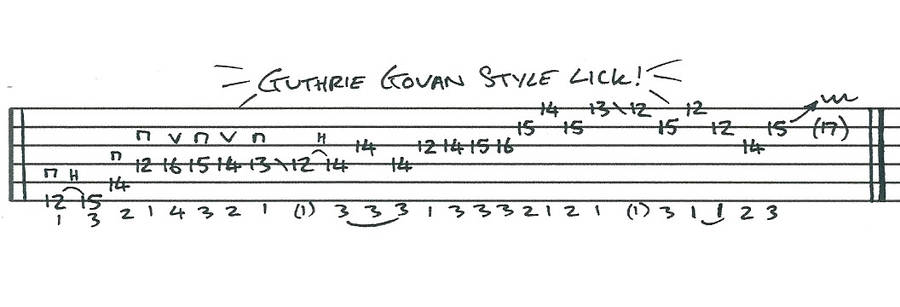 GUTHRIE GOVAN STYLE LICK!
14 13\12 12
15 15 15 12 15 (17)
⊓ V ⊓ V ⊓ H
14 12 14 15 16 14
⊓
12 16 15 14 13\12 14 14
⊓ H
14
12 15
1 3 2 1 4 3 2 1 (1) 3 3 3 1 3 3 3 2 1 2 1 (1) 3 1 1 2 3